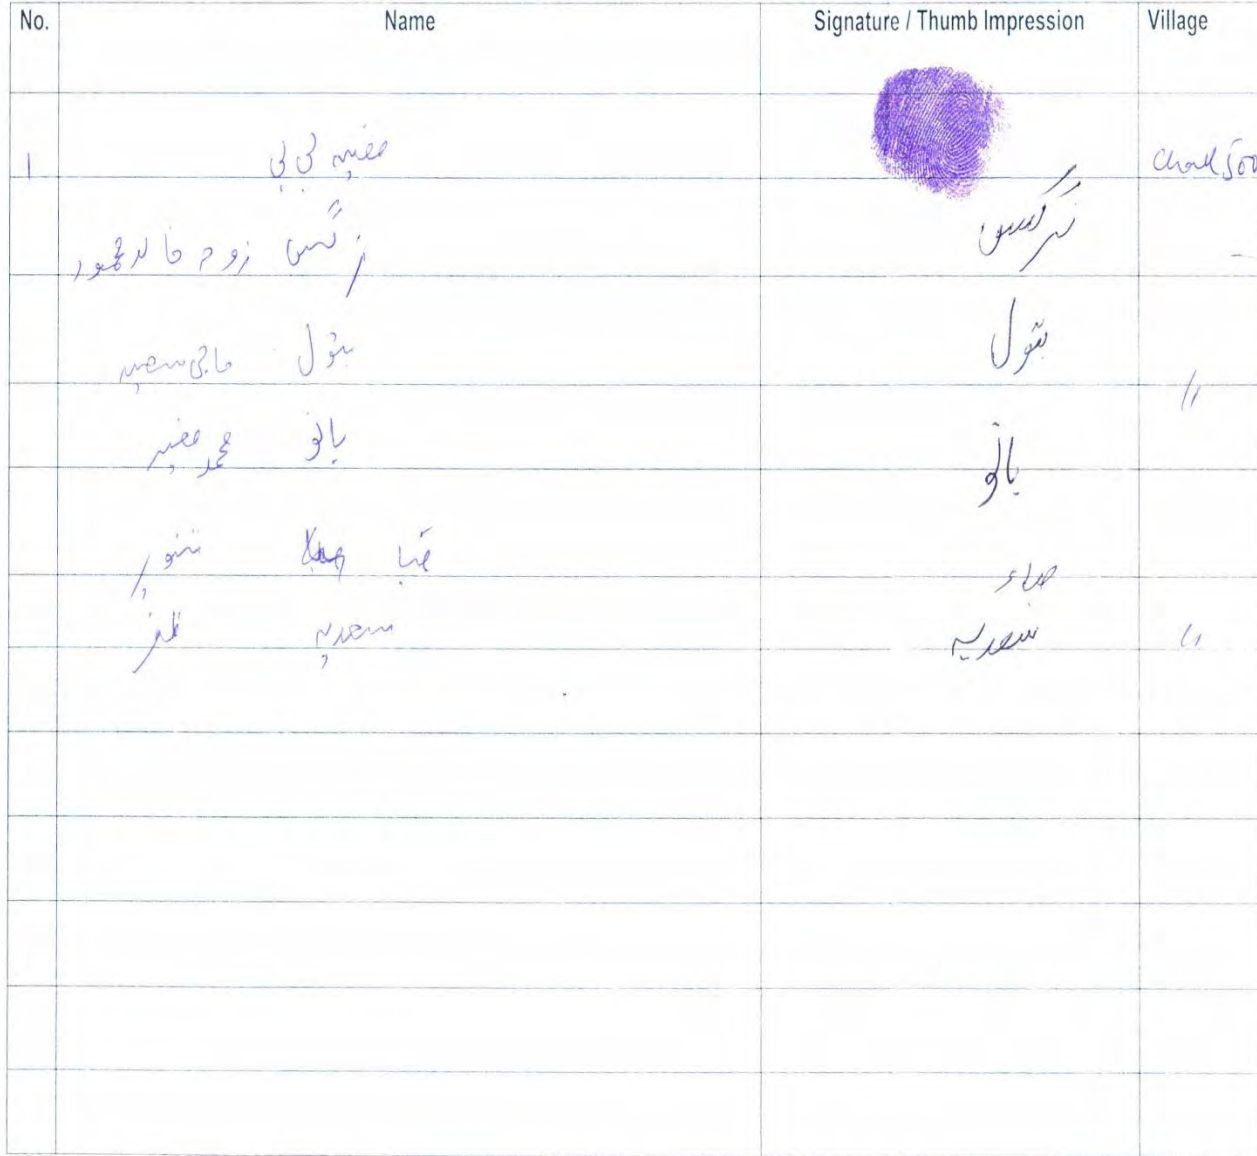 No. Name Signature / Thumb Impression Village
1 صفیہ بی بی Chak 500
نرگس زوجہ خالد محمود نرگس -
بتول حاجی سعید بتول //
بانو محمد صغیر بانو
تنویر صباء
سعدیہ ظفر سعدیہ //